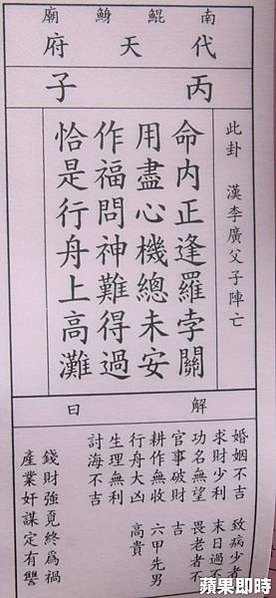 南鯤鯓廟
代天府
丙子
此卦 漢李廣父子陣亡
命內正逢羅孛關
用盡心機總未安
作福問神難得過
恰是行舟上高灘
解曰
婚姻不吉 致病少者
求財少利 末日過不
功名無望 畏老者不
官事破財 吉
耕作無收 六甲先男
行舟大凶 高貴
生理無利
討海不吉
錢財強覓終為禍
產業奸謀定有讐
蘋果即時